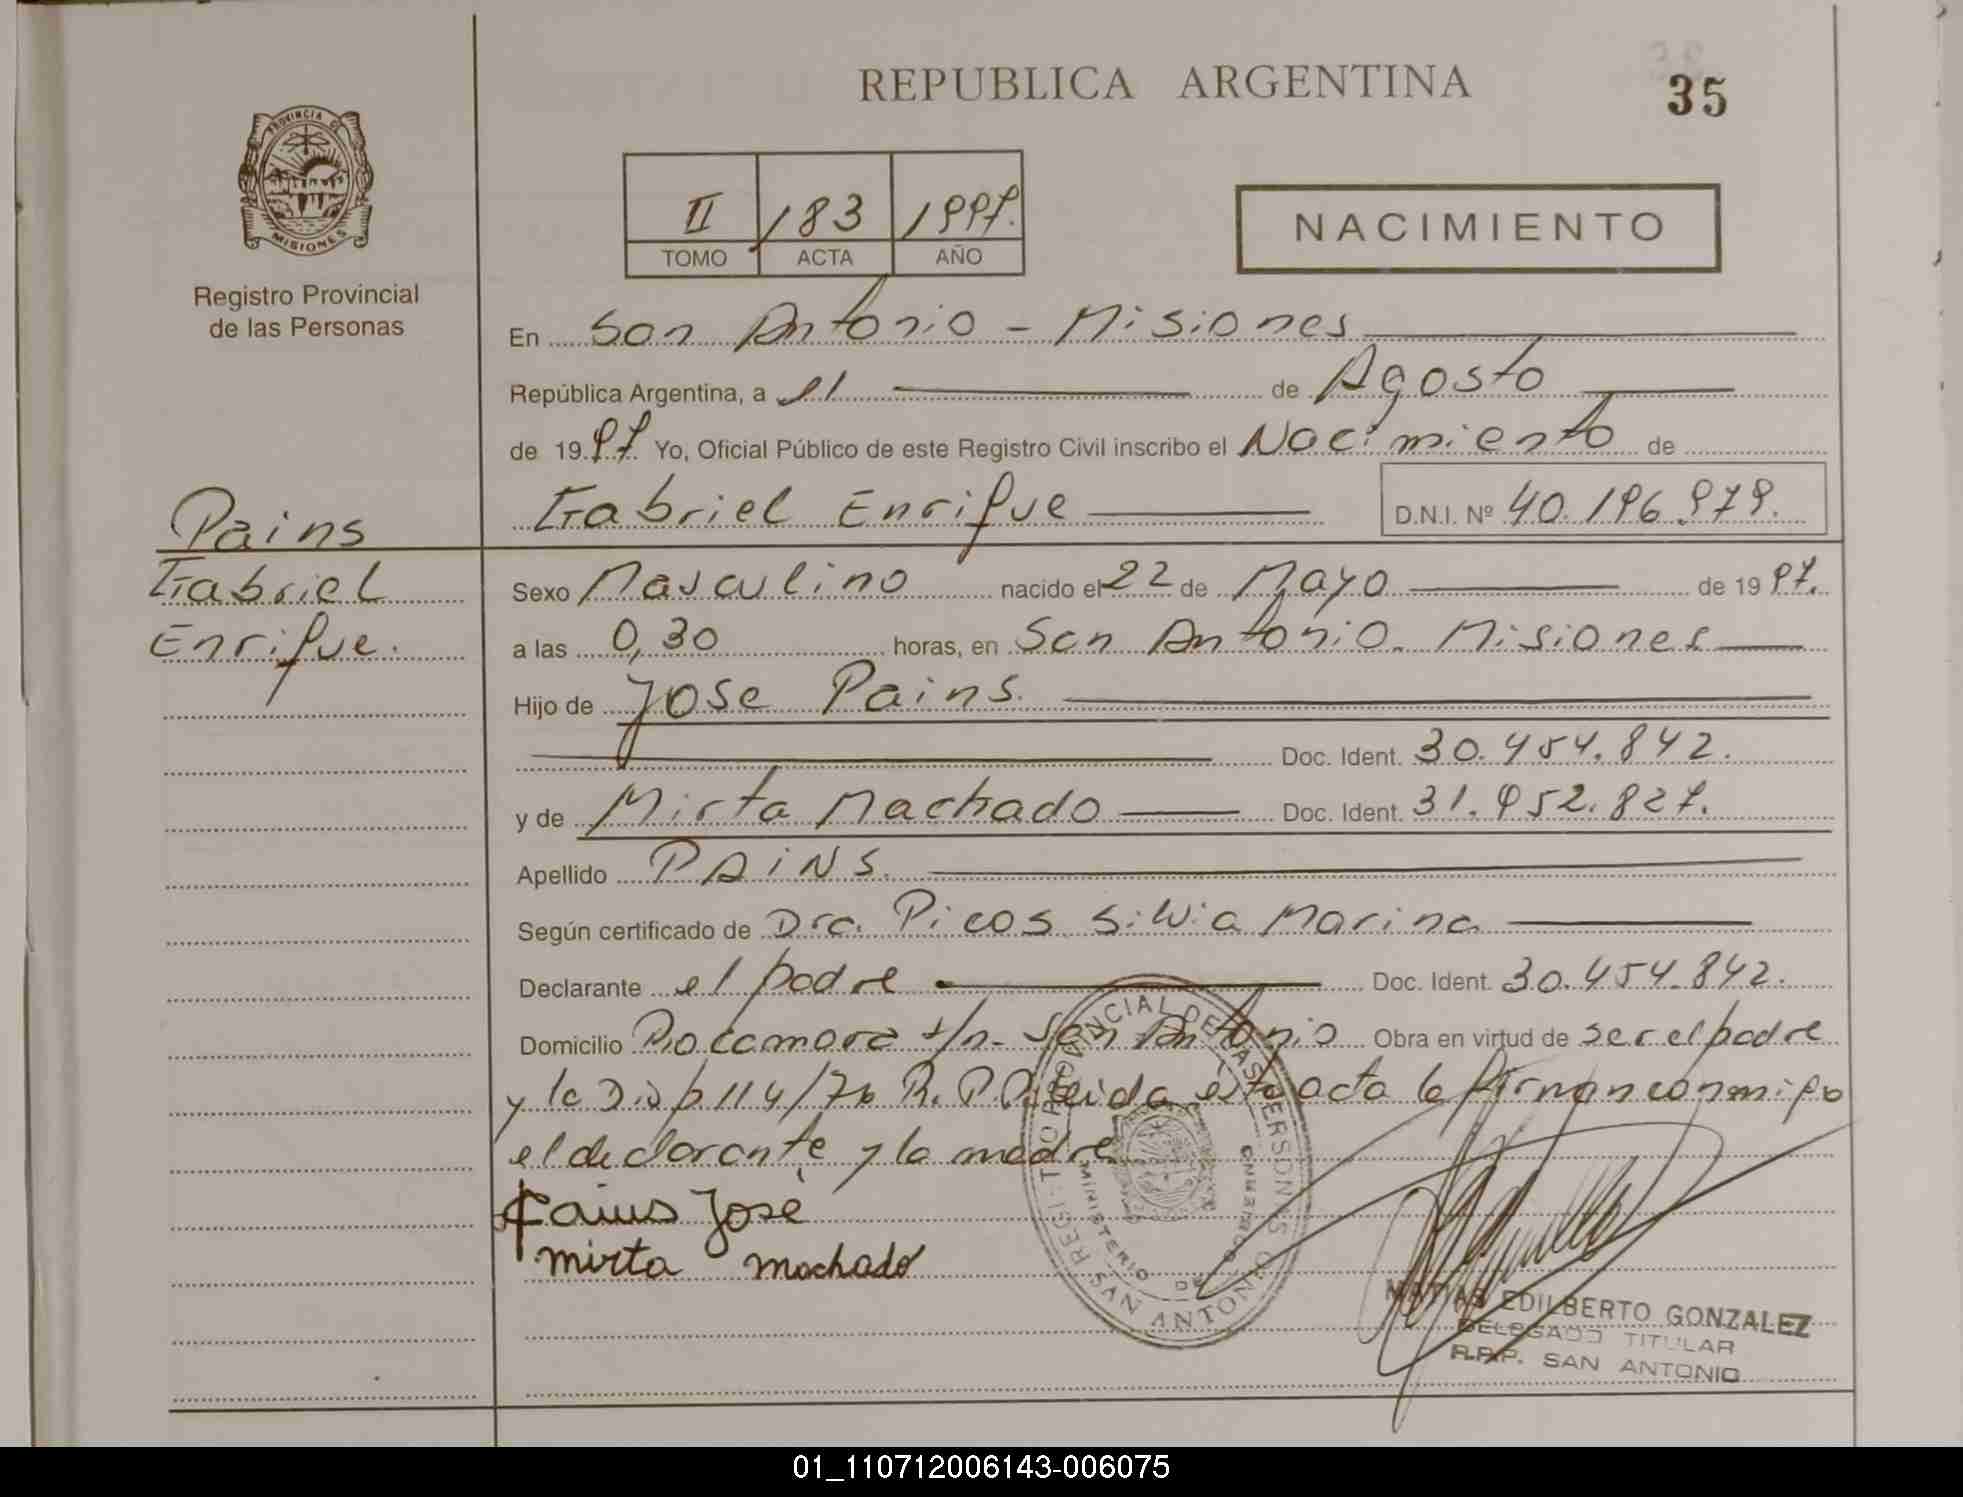 REPUBLICA ARGENTINA
35
PROVINCIA DE
MISIONES
Registro Provincial
de las Personas
II 183 1997.
TOMO ACTA AÑO
NACIMIENTO
En San Antonio - Misiones
República Argentina, a 21 de Agosto
de 1997. Yo, Oficial Público de este Registro Civil inscribo el Nacimiento de
Gabriel Enrique D.N.I. Nº 40.196.979.
Pains
Gabriel
Enrique.
Sexo Masculino nacido el 22 de Mayo de 1997.
a las 0,30 horas, en San Antonio. Misiones
Hijo de Jose Pains.
Doc. Ident. 30.454.842.
y de Mirta Machado Doc. Ident. 31.952.827.
Apellido PAiNS.
Según certificado de Dra. Picos Silvia Marina
Declarante el padre Doc. Ident. 30.454.842.
Domicilio Rocamora s/n. San Antonio Obra en virtud de ser el padre
y la Disp 114/76 R.P.P. Leida esta acta la firman conmigo
el declarante y la madre
Pains José
mirta machado
REGISTRO PROVINCIAL DE LAS PERSONAS
MINISTERIO DE GOBIERNO
SAN ANTONIO
MATIAS EDILBERTO GONZALEZ
DELEGADO TITULAR
R.P.P. SAN ANTONIO
01_110712006143-006075